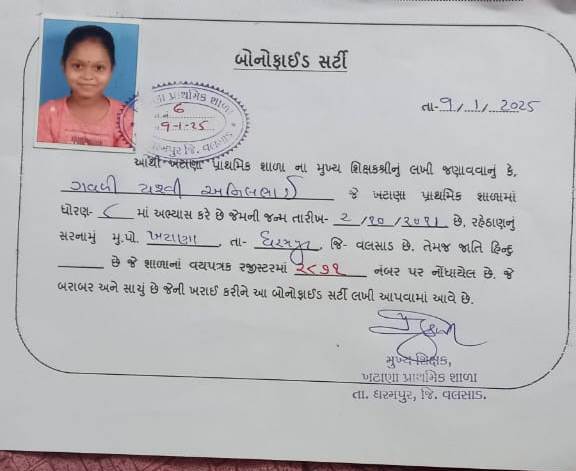 બોનોફાઈડ સર્ટી
તા-9/1/2025
પ્રાથમિક શાળા
6
9-1-25
આથી ખટાણા પ્રાથમિક શાળા ના મુખ્ય શિક્ષકશ્રીનું લખી જણાવવાનું કે,
ગવળી યશ્વી અનિલભાઈ જે ખટાણા પ્રાથમિક શાળામાં
ધોરણ- ૮ માં અભ્યાસ કરે છે જેમની જન્મ તારીખ- ૨/૧૦/૨૦૧૧ છે, રહેઠાણનું
સરનામું મુ.પો. ખટાણા, તા- ધરમપુર, જિ- વલસાડ છે. તેમજ જાતિ હિન્દુ
છે જે શાળાનાં વયપત્રક રજીસ્ટરમાં ૨૮૭૧ નંબર પર નોંધાયેલ છે. જે
બરાબર અને સાચું છે જેની ખરાઈ કરીને આ બોનોફાઈડ સર્ટી લખી આપવામાં આવે છે.
મુખ્ય શિક્ષક,
ખટાણા પ્રાથમિક શાળા
તા. ધરમપુર, જિ. વલસાડ.